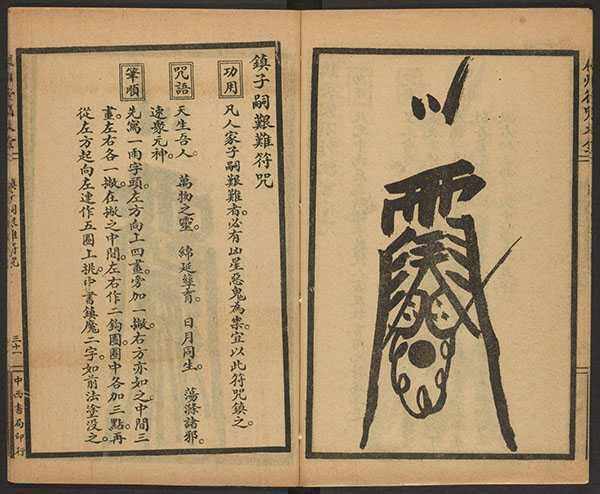 鎮子嗣艱難符咒
功用
凡人家子嗣艱難者。必有凶星惡鬼為祟。宜以此符咒鎮之。
咒語
天生吾人 萬物之靈。綿延螽育。日月同生。蕩滌諸邪。
速眾元神。
筆順
先寫一雨字頭。左方向上四畫。旁加一撇。右方亦如之。中間三
畫。左右各一撇。在撇之中間。左右作二鈎圈。圈中各加三點。再
從左方起向左連作五圈上挑。中書鎮魔二字。如前法塗沒之。
鎮子嗣艱難符咒
三十一
中西書局印行